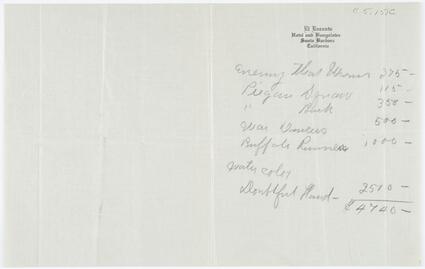 El Encanto
Hotel and Bungalows
Santa Barbara
California
Enemy That Warns 275-
Piegan Squaw 115-
" Buck 350-
War 500-
Buffalo Runners 1000-
Water color
Doubtful Hand - 2500-
4740-